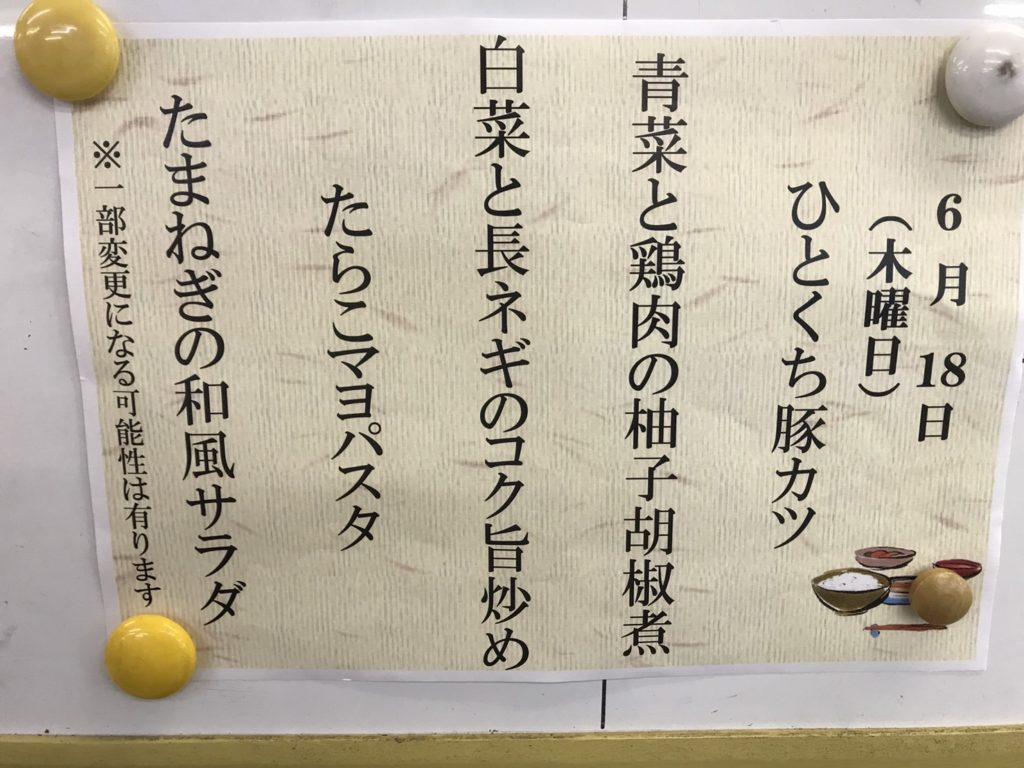 6月18日
（木曜日）
ひとくち豚カツ
青菜と鶏肉の柚子胡椒煮
白菜と長ネギのコク旨炒め
たらこマヨパスタ
たまねぎの和風サラダ
※一部変更になる可能性は有ります